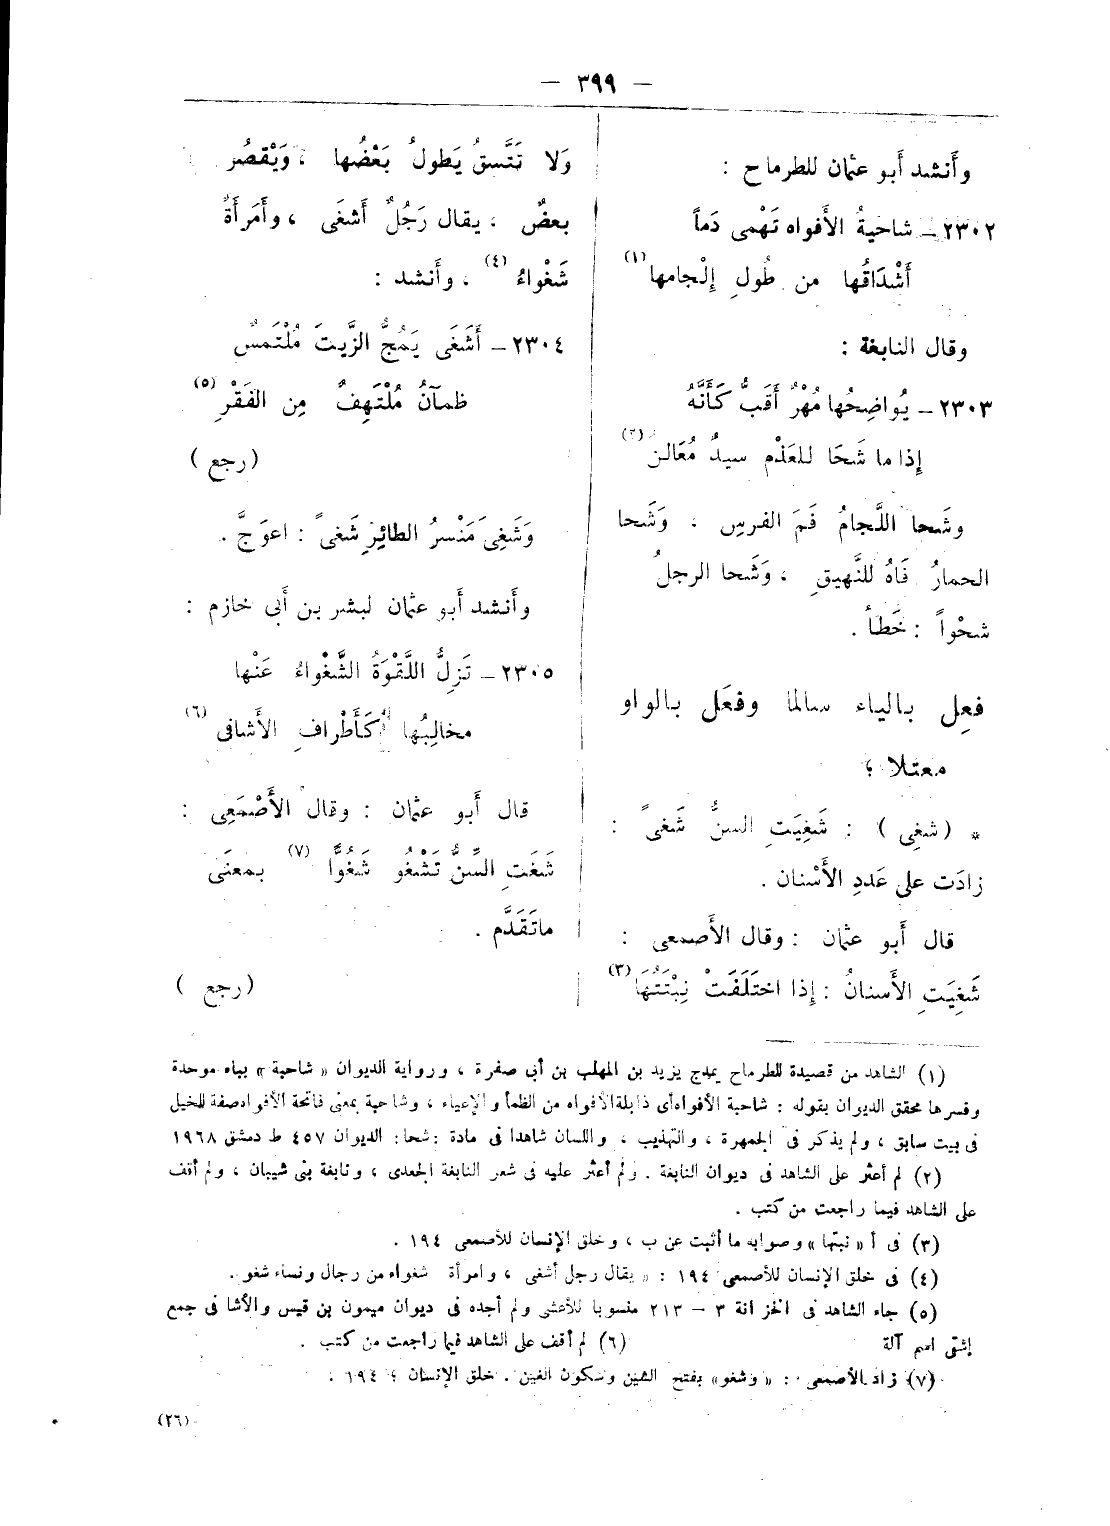 — ٣٩٩ —
وَأَنشد أَبو عثمان للطرماح :
٢٣٠٢ـ شاحيةُ الأَفواه تَهْمى دَماً
أَشْدَاقُها من طُولِ إِلْجامها (١)
وقال النابغة :
٢٣٠٣ـ يُواضِحُها مُهْرٌ أَقَبُّ كَأَنَّهُ
إِذا ما شَحَا للعَذْمِ سيدٌ مُغَالن (٢)
وشَحا اللَّجامُ فَمَ الفرسِ ، وَشَحا
الحمارُ فَاهُ للنَّهيقِ ، وَشَحا الرجلُ
شحْواً : خَطَأ .
فعِل بالياء سالما وفعَل بالواو
معتلا ؛
* (شغِى) : شَغِيَتِ السنُّ شَغىً :
زادَت على عَددِ الأَسْنان .
قال أَبو عثمان : وقال الأَصمعى :
شَغِيَتِ الأَسنانُ : إِذا اختَلَفَتْ نِبْتَتُهَا (٣)
وَلا تَتَّسقُ يَطولُ بَعْضُها ، وَيْقصُر
بعضٌ ، يقال رَجُلٌ أَشغَى ، وأَمَرأَةٌ
شَغْواءُ (٤) ، وأَنشد :
٢٣٠٤ـ أَشَغَى يَمُجُّ الزَّيتَ مُلْتَمسٌ
ظمآنُ مُلْتَهِفٌ مِن الفَقْرِ (٥)
(رجع)
وَشَغِىَ مَنْسرُ الطائِرِ شَغىً : اعوَجَّ .
وأَنشد أَبو عثمان لبشر بن أَبى خازم :
٢٣٠٥ـ تَزِلُّ اللَّقْوَةُ الشَّغْواءُ عَنْها
مخالِبُها كَأَطْرافِ الأَشافى (٦)
قال أَبو عثمان : وقال الأَصْمَعِى :
شَغَتِ السِّنُّ تَشْغُو شَغُوًّا (٧) بمعنَى
ماتَقَدَّم .
(رجع)
(١) الشاهد من قصيدة للطرماح يمدح يزيد بن المهلب بن أبى صفرة ، ورواية الديوان « شاحبة » بباء موحدة
وفسرها محقق الديوان بقوله : شاحبة الأفواه أى ذابلة الأفواه من الظمأ والإعياء ، وشاحية بمعنى فاتحة الأفواه صفة للخيل
فى بيت سابق ، ولم يذكر فى الجمهرة ، والتهذيب ، واللسان شاهدا فى مادة : شحا : الديوان ٤٥٧ ط دمشق ١٩٦٨
(٢) لم أعثر على الشاهد فى ديوان النابغة . ولم أعثر عليه فى شعر النابغة الجعدى ، ونابغة بنى شيبان ، ولم أقف
على الشاهد فيما راجعت من كتب .
(٣) فى أ « نبتها » وصوابه ما أثبت عن ب ، وخلق الإنسان للأصمعى ١٩٤ .
(٤) فى خلق الإنسان للأصمعى ١٩٤ : « يقال رجل أشغى ، وامرأة شغواء من رجال ونساء شغو .
(٥) جاء الشاهد فى الخزانة ٣ – ٢١٣ منسوبا للأعشى ولم أجده فى ديوان ميمون بن قيس والأشا فى جمع
إشفى اسم آلة (٦) لم أقف على الشاهد فيما راجعت من كتب .
(٧) زاد الأصمعى : « وشغو » بفتح الشين وسكون الغين . خلق الإنسان : ١٩٤ .
(٢٦)